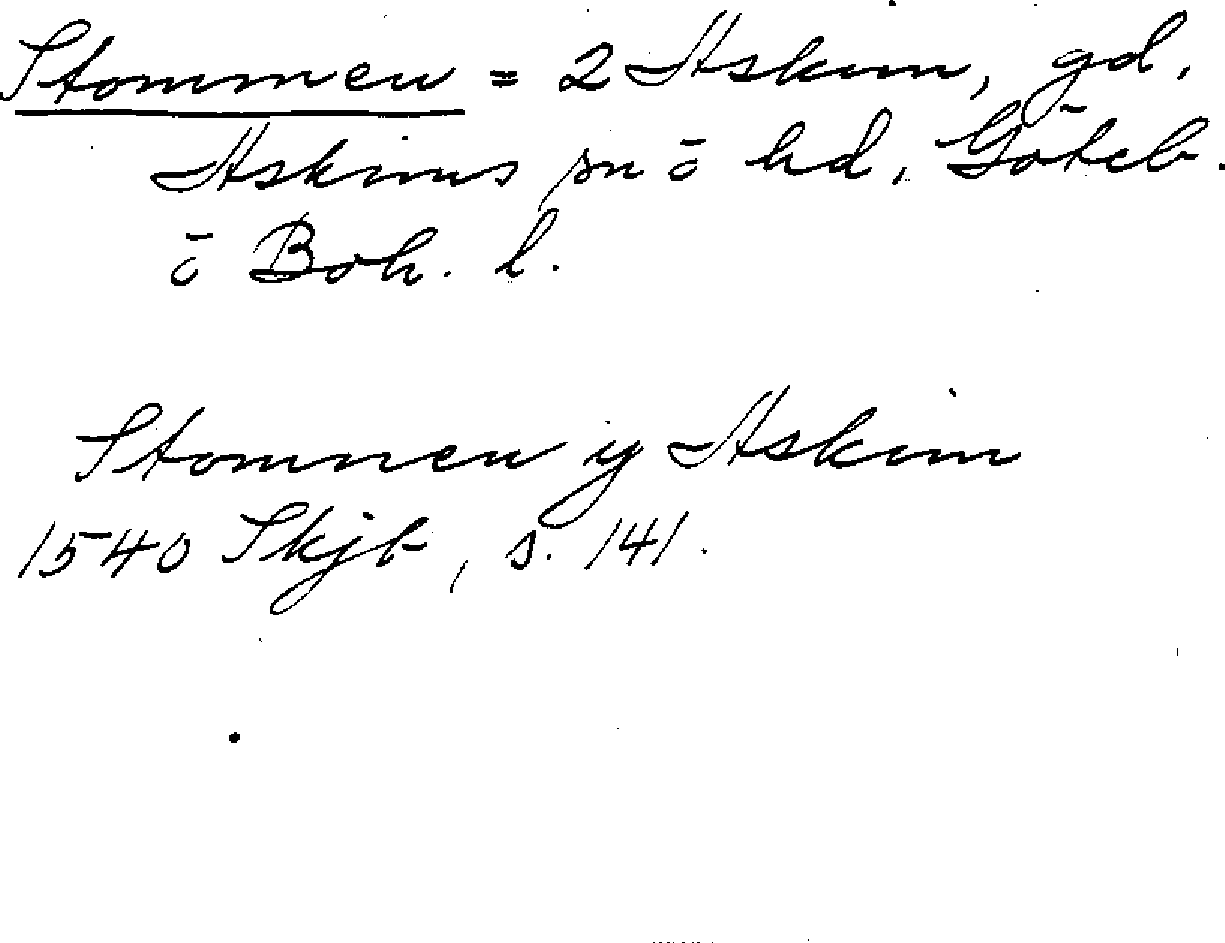 Stommen = 2 Askim, gd,
Askims sn ō hd, Göteb.
ō Boh. l.
Stomnen y Askim
1540 Skjb, s. 141.